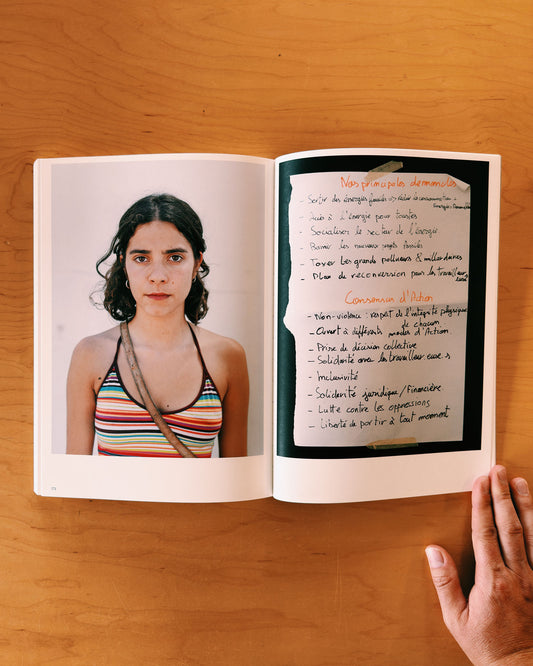 Nos principales demandes
- Sortir des énergies fossiles => réduire la consommation +
énergies renouvelables
- Accès à l'énergie pour toustes
- Socialiser le secteur de l'énergie
- Bannir les nouveaux projets fossiles
- Taxer les grands pollueurs & milliardaires
- Plan de reconversion pour les travailleur
Consensus d'Action
- Non-violence : respect de l'intégrité physique
de chacun
- Ouvert à différents modes d'Action
- Prise de décision collective
- Solidarité avec les travailleur.euse.s
- Inclusivité
- Solidarité juridique / Financière
- Lutte contre les oppressions
- Liberté de partir à tout moment